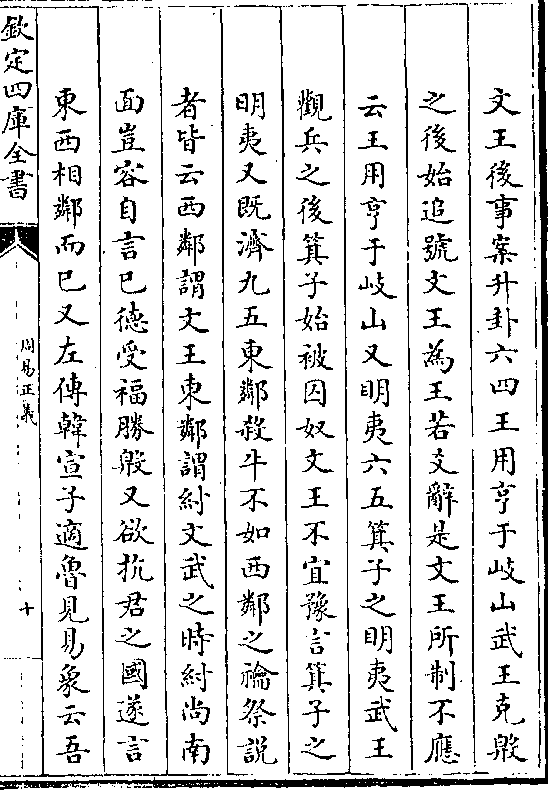 文王後事案升卦六四王用亨于岐山武王克殷
之後始追號文王為王若爻辭是文王所制不應
云王用亨于岐山又明夷六五箕子之明夷武王
觀兵之後箕子始被囚奴文王不宜豫言箕子之
明夷又既濟九五東鄰殺牛不如西鄰之禴祭說
者皆云西鄰謂文王東鄰謂紂文武之時紂尚南
面豈容自言已德受福勝殷又欲抗君之國遂言
東西相鄰而已又左傳韓宣子適魯見易象云吾
欽定四庫全書
周易正義
十